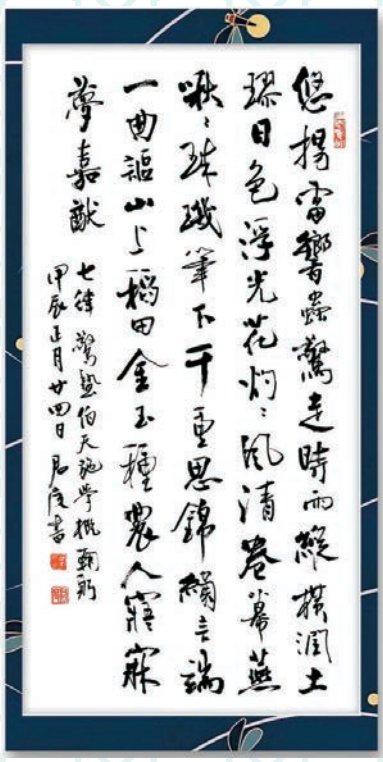 悠揚雷響蟲驚走時雨縱橫潤土
璆日色浮光花灼〻風清卷幕燕
啾〻珠璣筆下千重思錦繡言端
一曲謳山上稻田金玉種農人寤寐
夢嘉猷
七律 驚蟄 伯天施學概鞠躬
甲辰正月廿四日 君度書